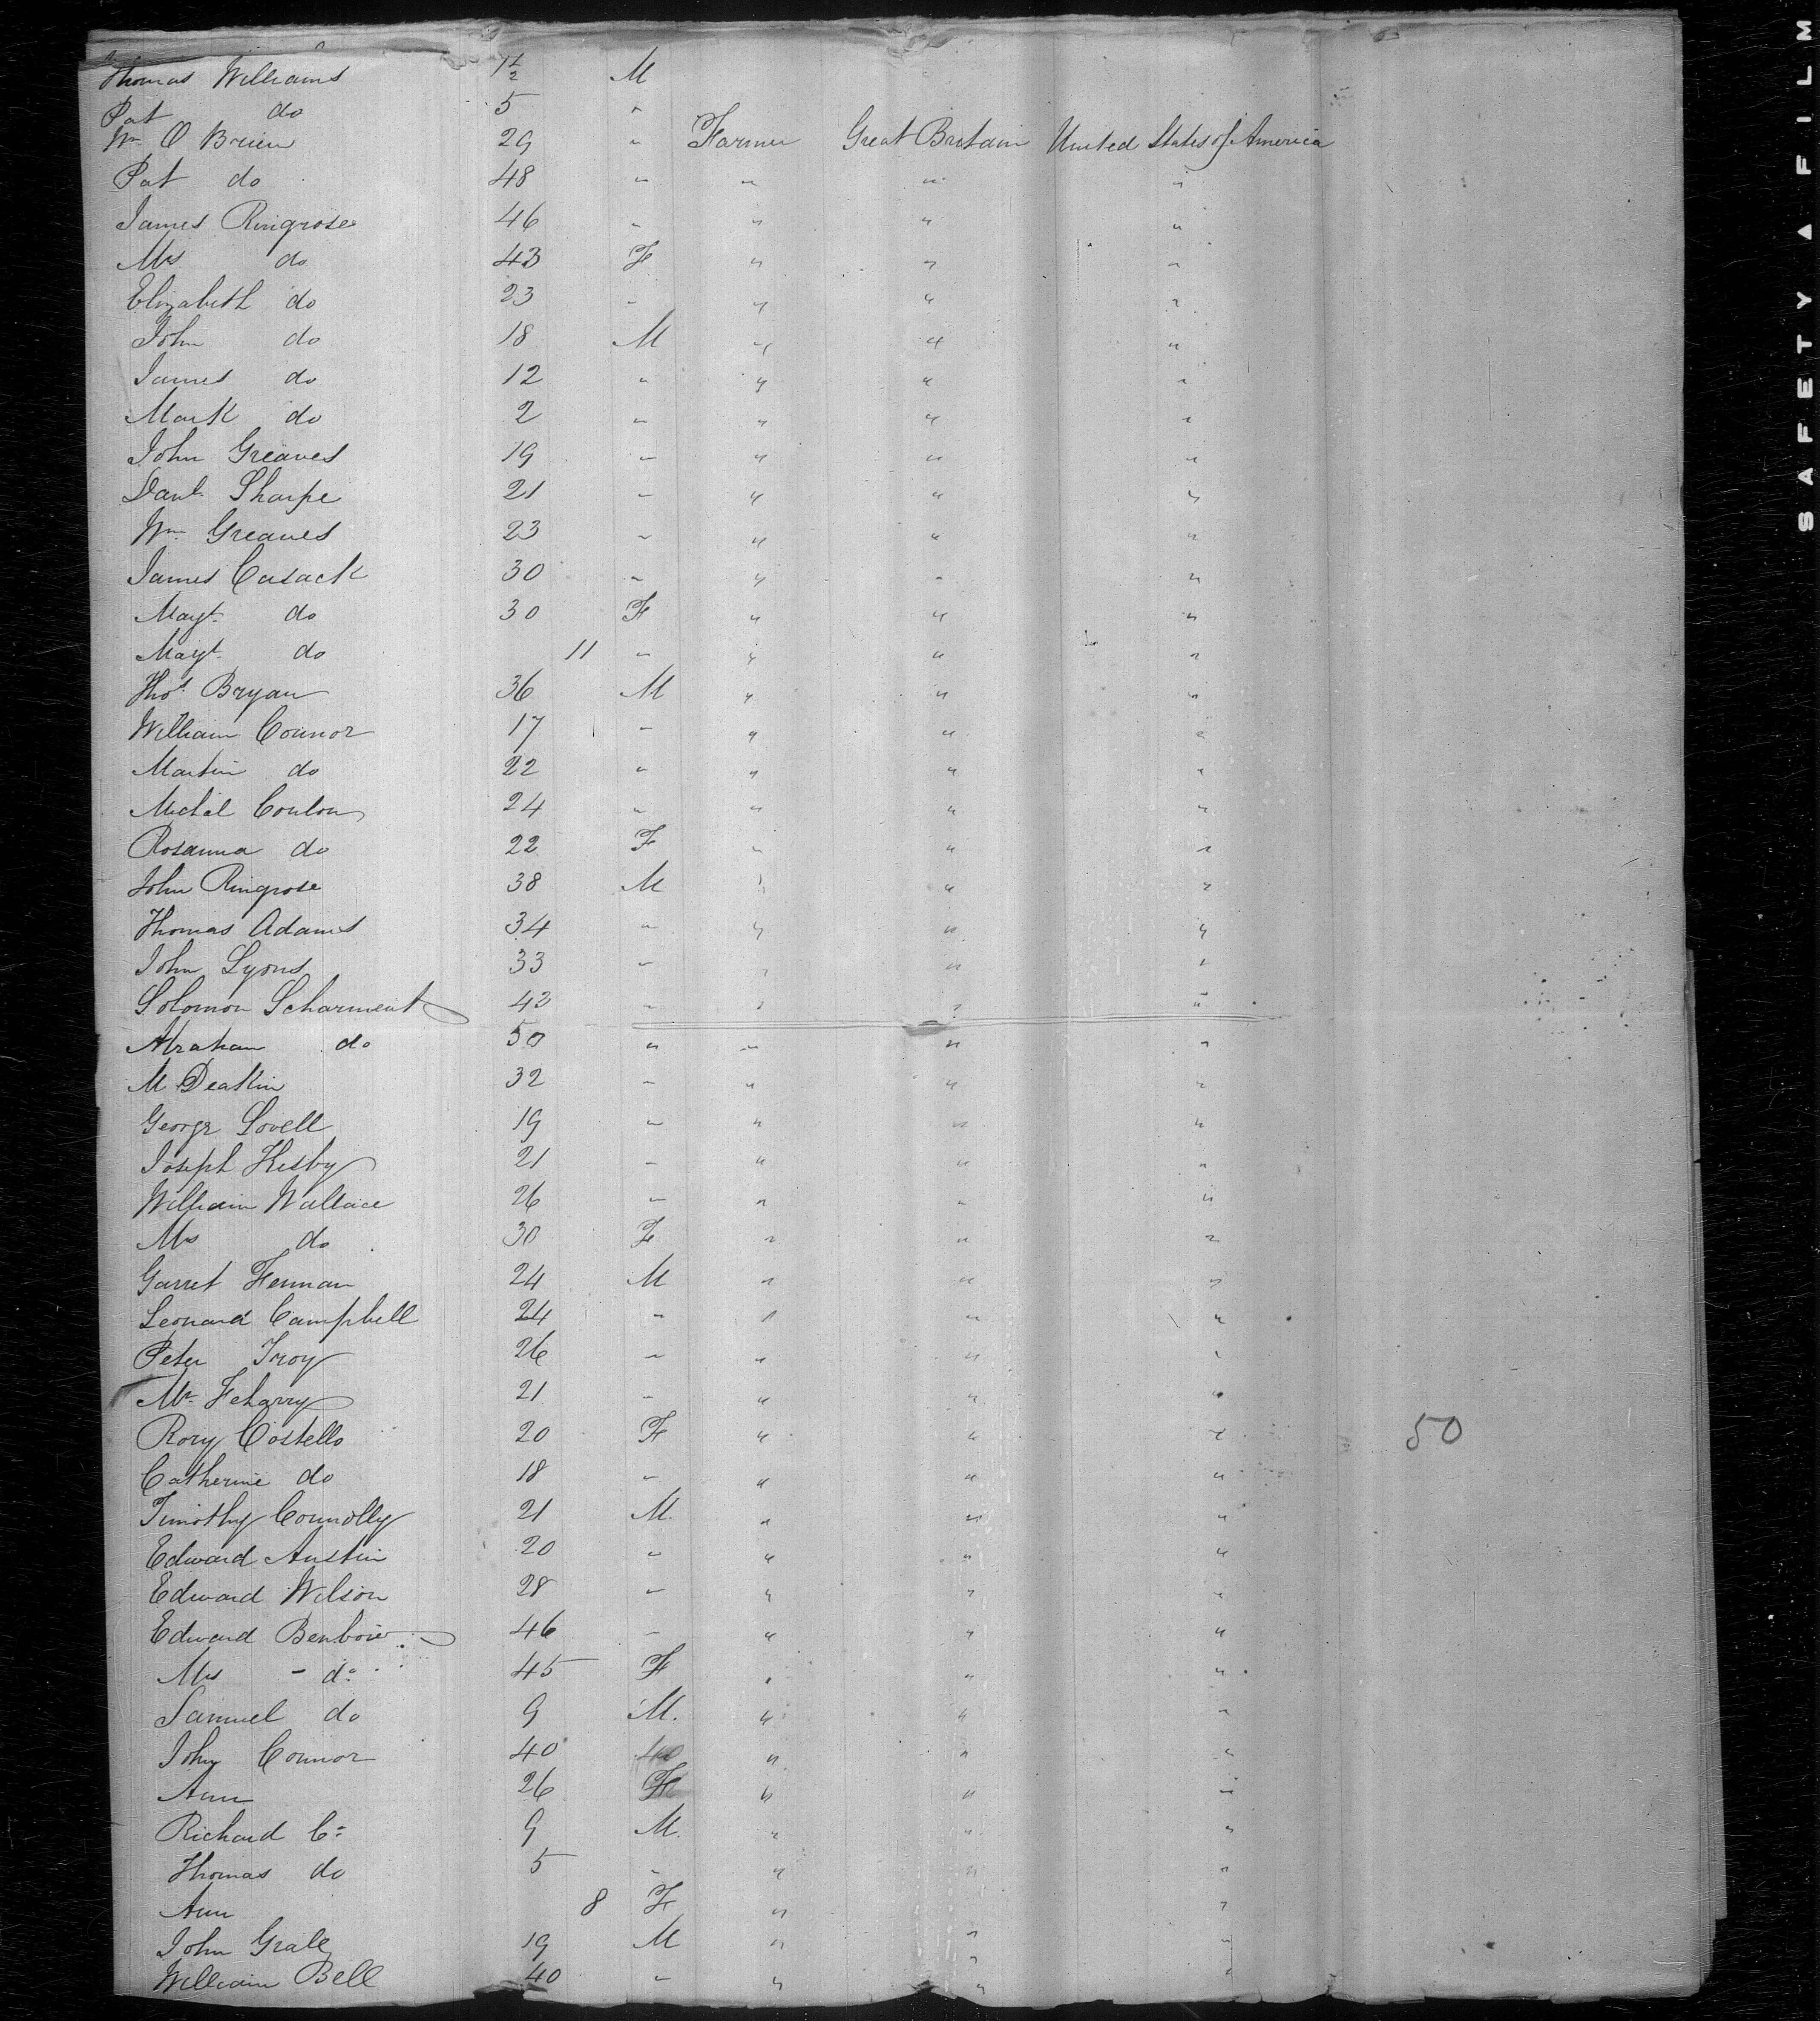 Thomas Williams 1½ M
Pat do 5 "
Wm O Brien 29 " Farmer Great Britain United States of America
Pat do 48 " " " "
James Ringrose 46 " " " "
Mrs do 43 F " " "
Elizabeth do 23 " " " "
John do 18 M " " "
James do 12 " " " "
Mark do 2 " " " "
John Greaves 19 " " " "
Danl Sharpe 21 " " " "
Wm Greaves 23 " " " "
James Casack 30 " " " "
Magt do 30 F " " "
Magt do 11 " " " "
Thos Bryan 36 M " " "
William Connor 17 " " " "
Martin do 22 " " " "
Michl Conlon 24 " " " "
Rosanna do 22 F " " "
John Ringrose 38 M " " "
Thomas Adams 34 " " " "
John Lyons 33 " " " "
Solomon Scharment 43 " " " "
Abraham do 50 " " " "
M Deakin 32 " " " "
George Lovell 19 " " " "
Joseph Kesby 21 " " " "
William Wallace 26 " " " "
Mrs do 30 F " " "
Garret Fennan 24 M " " "
Leonard Campbell 24 " " " "
Peter Troy 26 " " " "
Mr 21 " " " "
Rory Costello 20 F " " " 50
Catherine do 18 " " " "
Timothy Connolly 21 M. " " "
Edward Austin 20 " " " "
Edward Wilson 28 " " " "
Edward Benbow 46 " " " "
Mrs - do 45 F " " "
Samuel do 9 M. " " "
John Connor 40 " " "
Ann 26 F " " "
Richard Co 9 M. " " "
Thomas do 5 " " " "
Ann 8 F " "
John Grale 19 M " " "
William Bell 40 " " " "
SAFETY A FILM